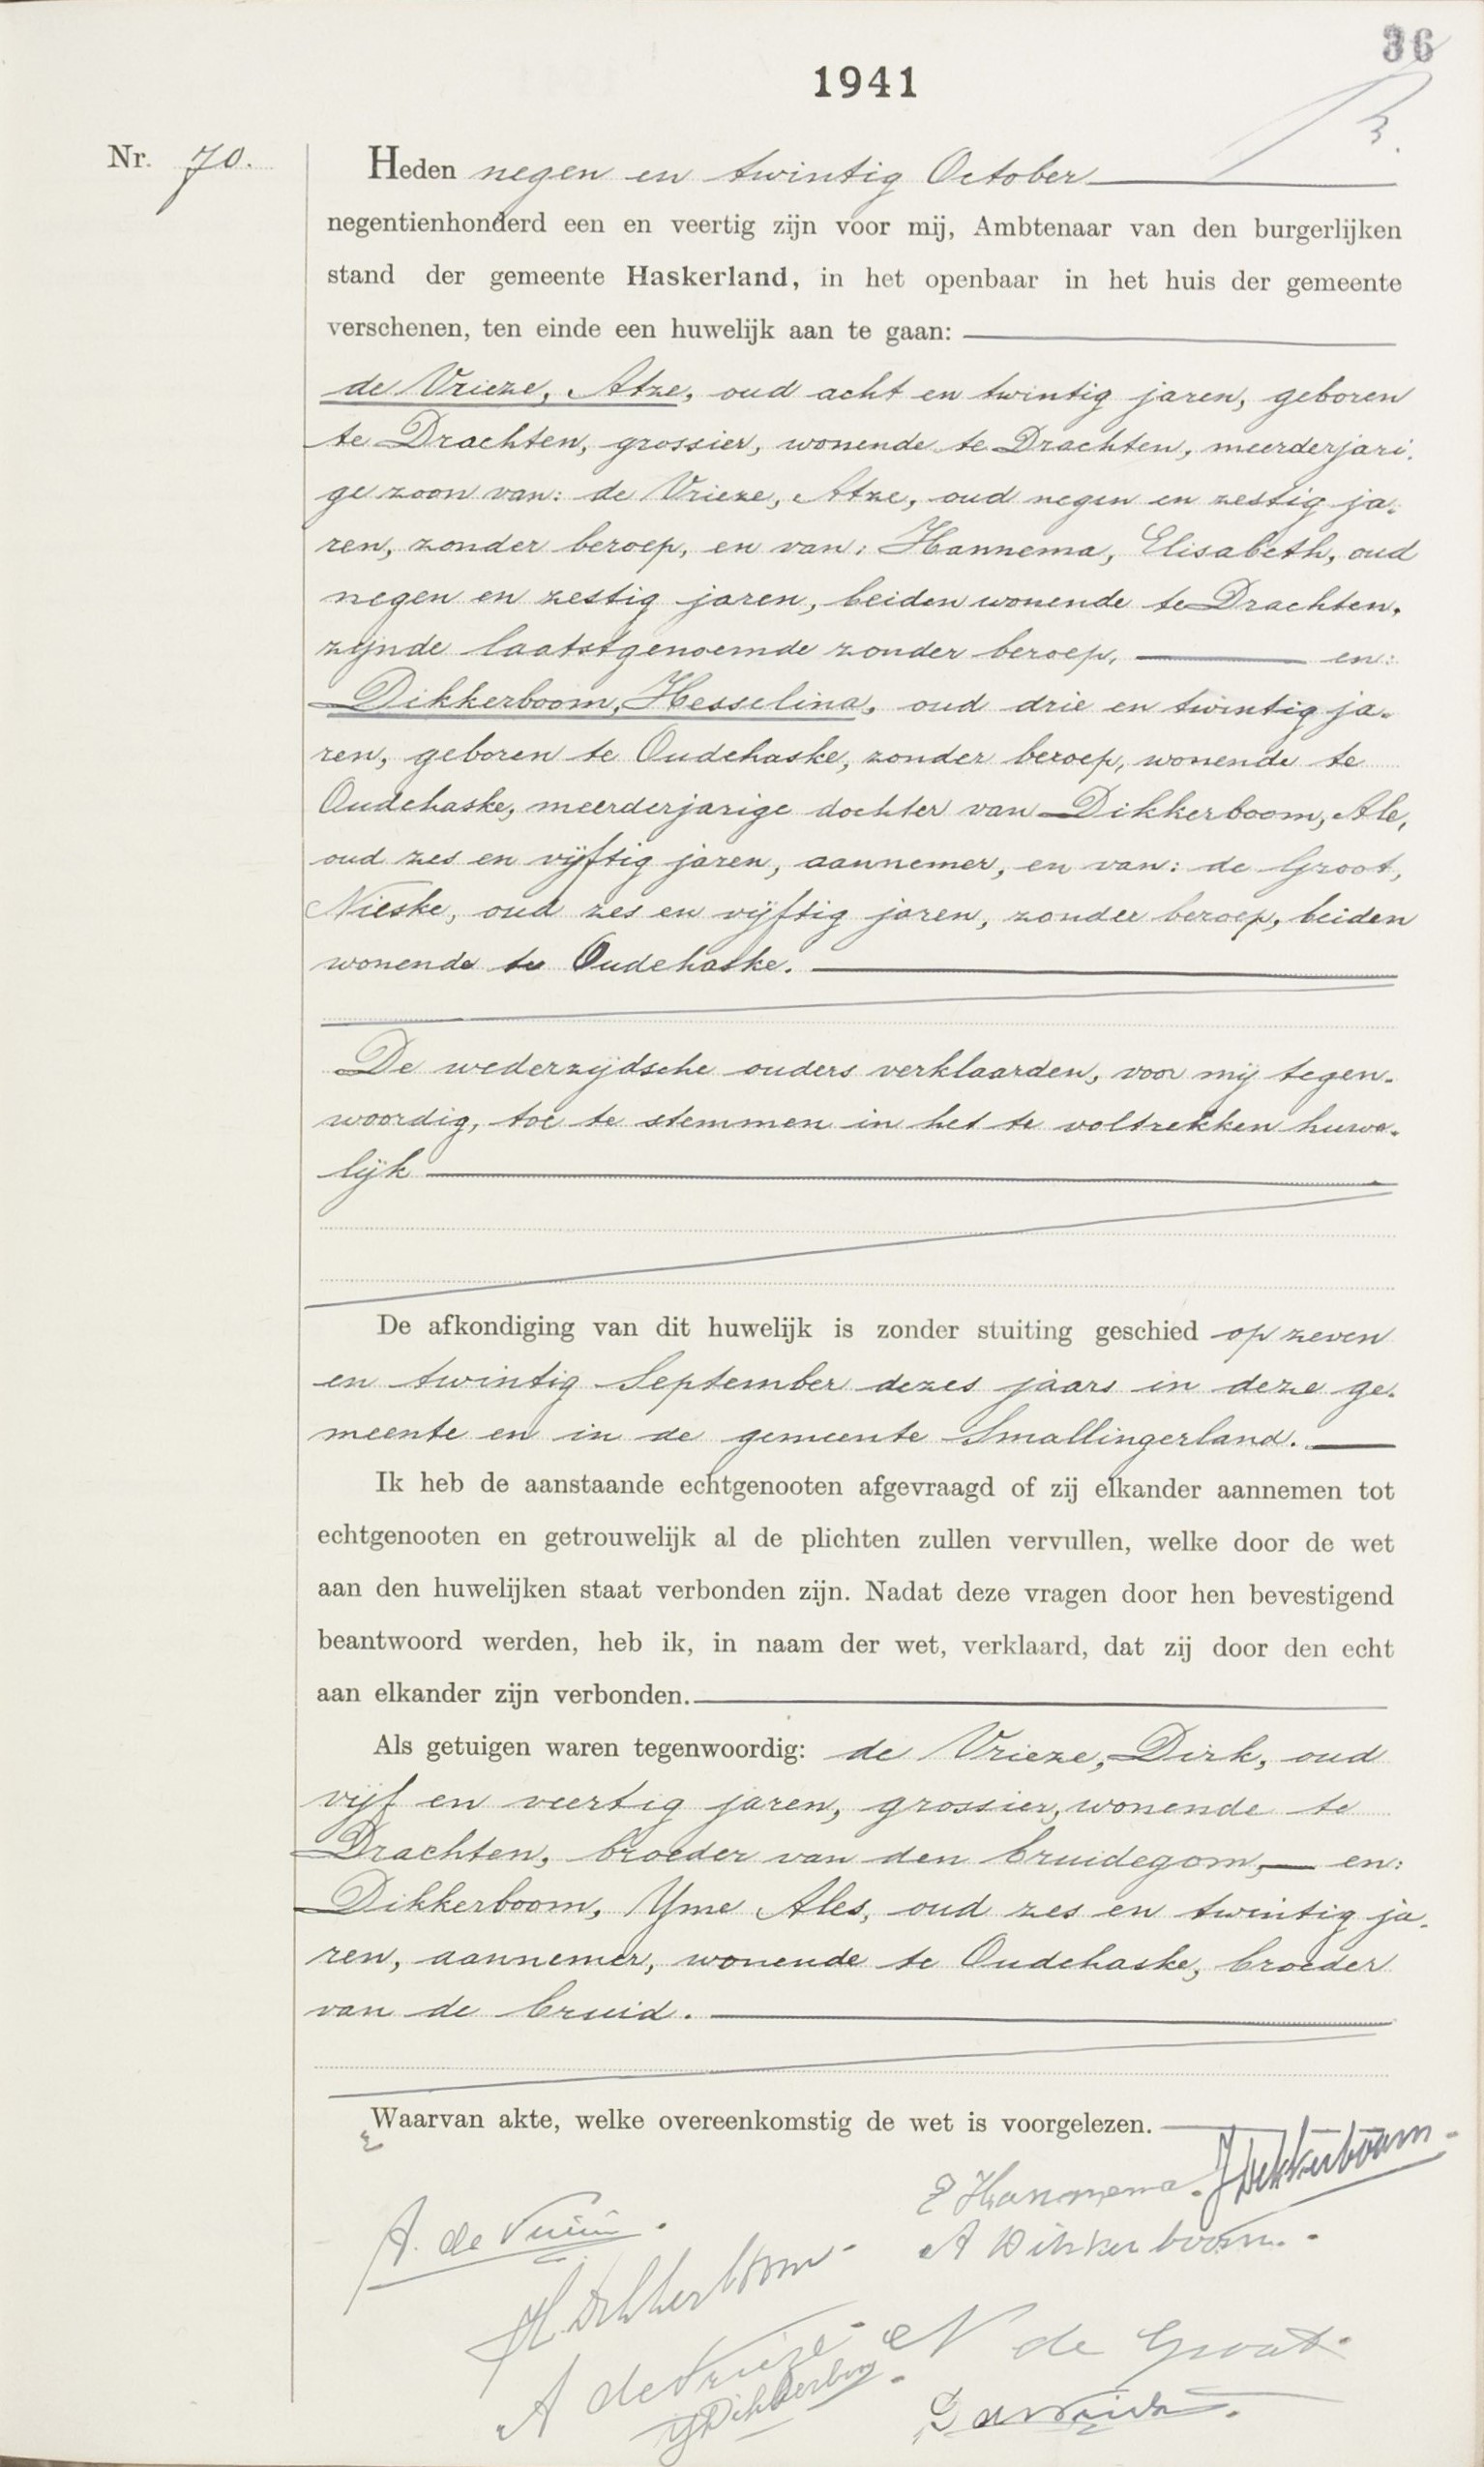 36
1941
Nr. 70.
Heden negen en twintig October
negentienhonderd een en veertig zijn voor mij, Ambtenaar van den burgerlijken
stand der gemeente Haskerland, in het openbaar in het huis der gemeente
verschenen, ten einde een huwelijk aan te gaan:
de Vrieze, Atze, oud acht en twintig jaren, geboren
te Drachten, grossier, wonende te Drachten, meerderjari-
ge zoon van: de Vrieze, Atze, oud negen en zestig ja-
ren, zonder beroep, en van: Hannema, Elisabeth, oud
negen en zestig jaren, beiden wonende te Drachten,
zijnde laatstgenoemde zonder beroep, en:
Dikkerboom, Hesselina, oud drie en twintig ja-
ren, geboren te Oudehaske, zonder beroep, wonende te
Oudehaske, meerderjarige dochter van Dikkerboom, Ale,
oud zes en vijftig jaren, aannemer, en van: de Groot,
Nieske, oud zes en vijftig jaren, zonder beroep, beiden
wonende te Oudehaske.
De wederzijdsche ouders verklaarden, voor mij tegen-
woordig, toe te stemmen in het te voltrekken huwe-
lijk
De afkondiging van dit huwelijk is zonder stuiting geschied op zeven
en twintig September dezes jaars in deze ge-
meente en in de gemeente Smallingerland.
Ik heb de aanstaande echtgenooten afgevraagd of zij elkander aannemen tot
echtgenooten en getrouwelijk al de plichten zullen vervullen, welke door de wet
aan den huwelijken staat verbonden zijn. Nadat deze vragen door hen bevestigend
beantwoord werden, heb ik, in naam der wet, verklaard, dat zij door den echt
aan elkander zijn verbonden.
Als getuigen waren tegenwoordig: de Vrieze, Dirk, oud
vijf en veertig jaren, grossier, wonende te
Drachten, broeder van den bruidegom, en:
Dikkerboom, Yme Ales, oud zes en twintig ja-
ren, aannemer, wonende te Oudehaske, broeder
van de bruid.
Waarvan akte, welke overeenkomstig de wet is voorgelezen.
E Hannema. Dikkerboom
A. de Vrieze
A Dikkerboom.
H. Dikkerboom
A de Vrieze
N de Groot
Y Dikkerboom